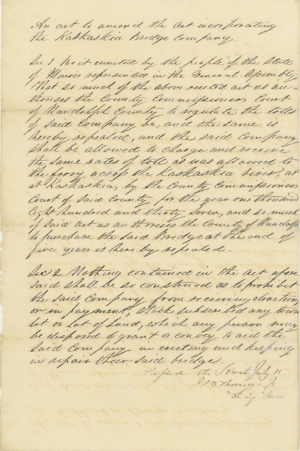 An act to amend the act incorporating
the Kaskaskia Bridge Company
Sec 1 Be it enacted by the people of the State
of Illinois represented in the General Assembly
That so much of the above recited act as au-
thorises the County Commissioners Court
of Randolph County to regulate the tolls
of said Company be, and the same is
hereby repealed, and the said Company
shall be allowed to charge and receive
the same rates of toll as was allowed to
the ferry across the Kaskaskia river, at
at Kaskaskia, by the County Commissioners
Court of said County, for the year one thousand
eight hundred and thirty seven, and so much
of said act as authorises the County of Randolph
to purchase the said Bridge at the end of
five years is hereby repealed.
Sec 2 Nothing contained in the act afore
said shall be so construed as to prohibit
the said Company from receiving donation
or in payment, Stock subscribed any town
lot or lot of land, which any person may
be disposed to grant or convey to aid the
said Company in erecting and keeping
in repair their said bridge.
Passed the July